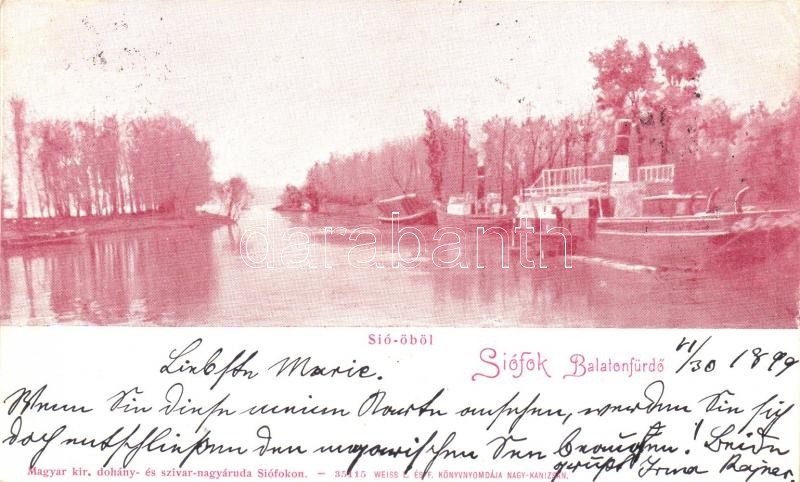 darabanth
Sió-öböl
Siófok Balatonfürdő
VI/30 1899
Liebste Marie.
Wenn Sie diese meine Karte ansehen, werden Sie sich
doch entschließen den ungarischen See besuchen! Beide
grüßt Irma
Magyar kir. dohány- és szivar-nagyáruda Siófokon. - 35115 WEISS L. ÉS F. KÖNYVNYOMDÁJA NAGY-KANIZSÁN.